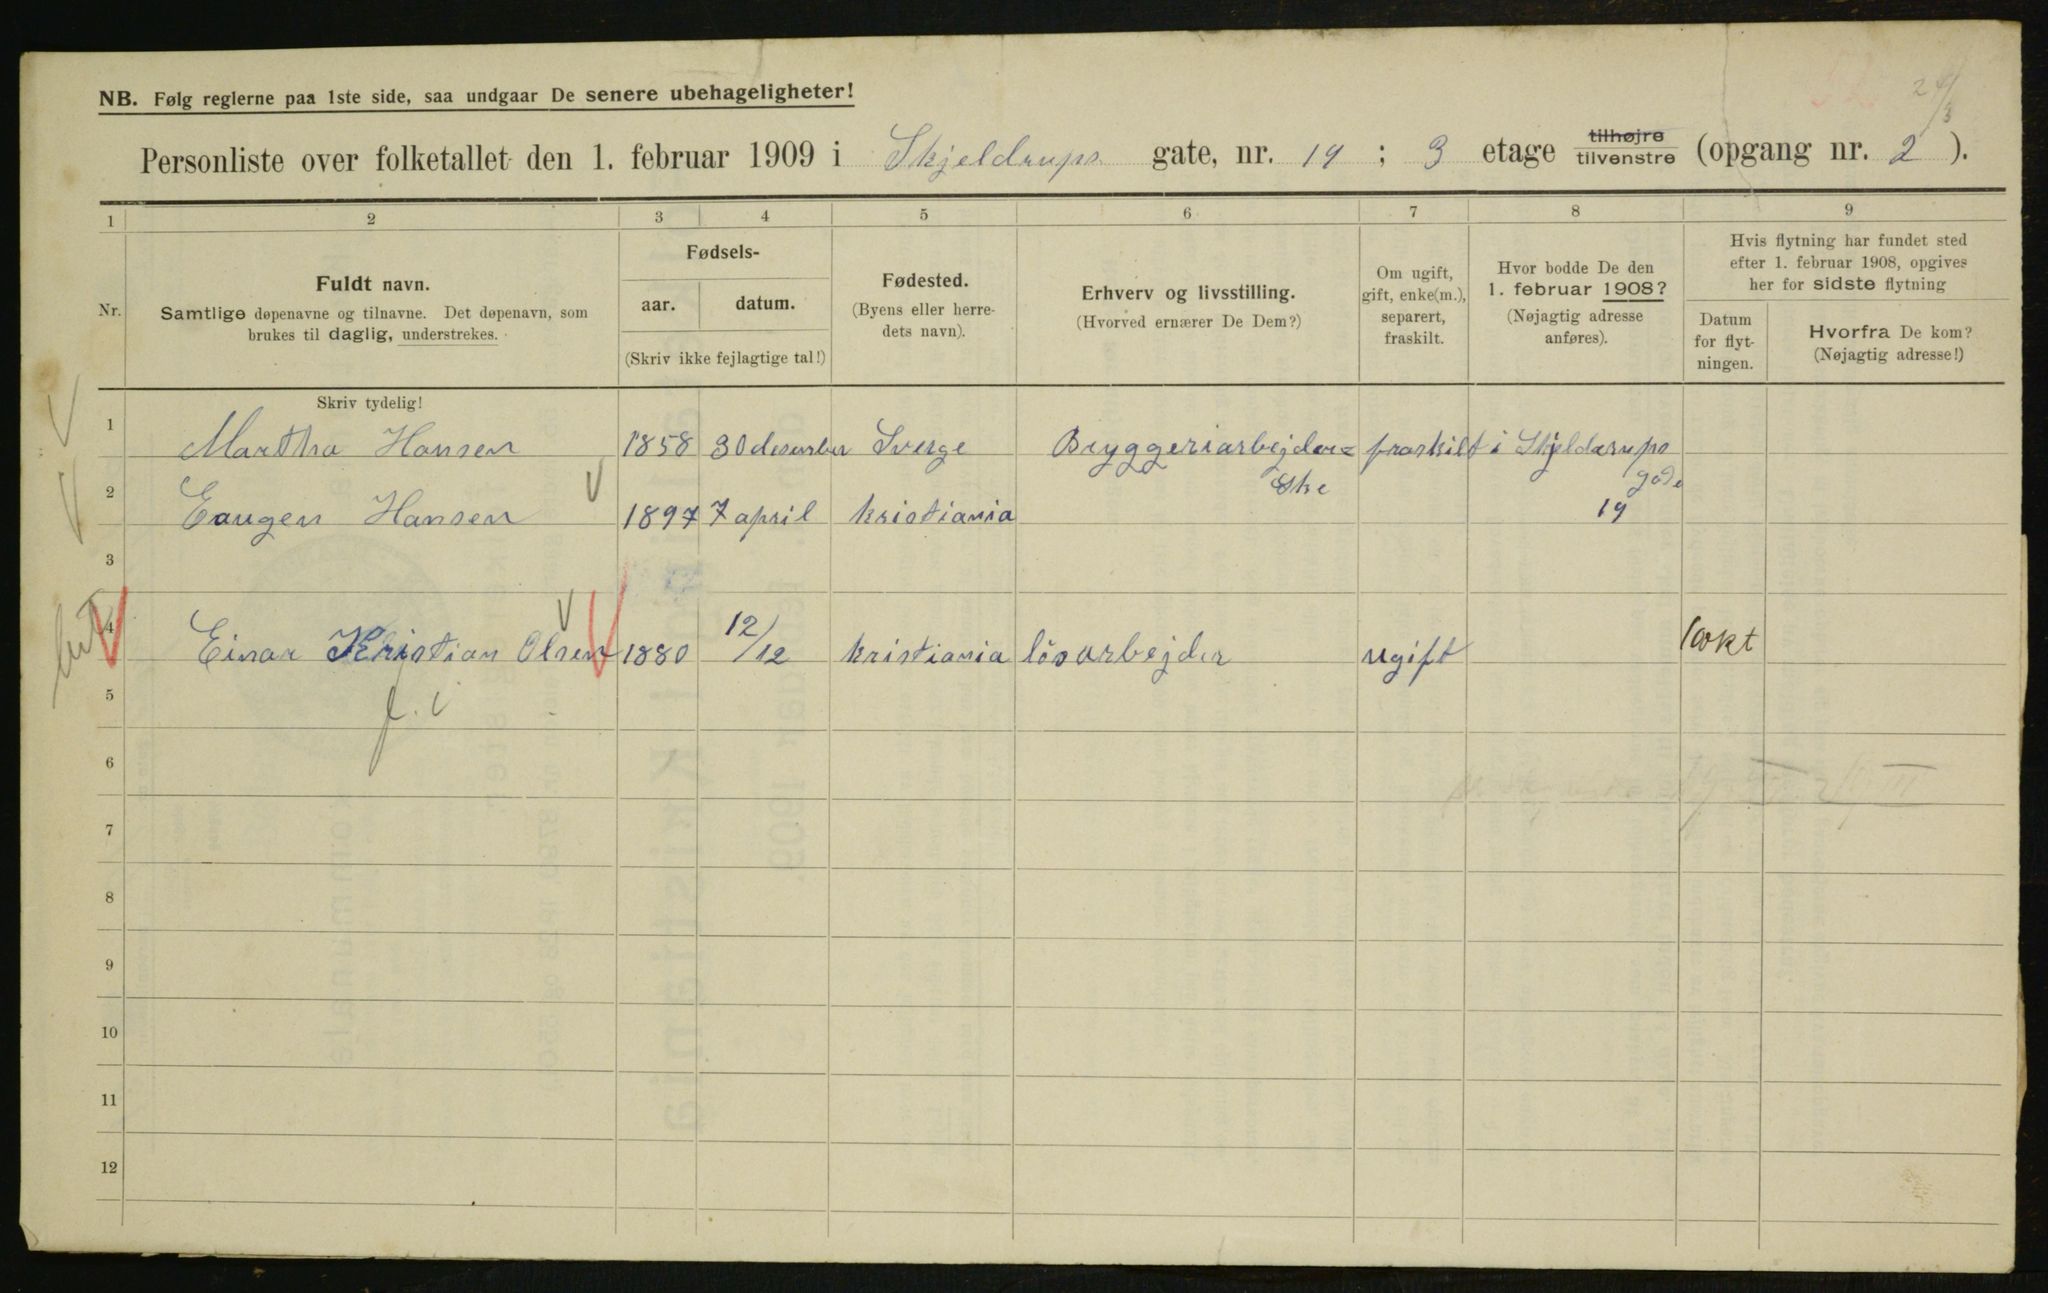 NB. Følg reglerne paa 1ste side, saa undgaar De senere ubehageligheter!
24/3
Personliste over folketallet den 1. februar 1909 i Skjeldrups gate, nr. 19 ; 3 etage tilhøjre tilvenstre (opgang nr. 2 ).
1 2 3 4 5 6 7 8 9
Nr.
Fuldt navn.
Samtlige døpenavne og tilnavne. Det døpenavn, som
brukes til daglig, understrekes.
Fødsels-
aar. datum.
(Skriv ikke fejlagtige tal!)
Fødested.
(Byens eller herre-
dets navn).
Erhverv og livsstilling.
(Hvorved ernærer De Dem?)
Om ugift,
gift, enke(m.),
separert,
fraskilt.
Hvor bodde De den
1. februar 1908?
(Nøjagtig adresse
anføres).
Hvis flytning har fundet sted
efter 1. februar 1908, opgives
her for sidste flytning
Datum
for flyt-
ningen.
Hvorfra De kom?
(Nøjagtig adresse!)
Skriv tydelig!
1 Martha Hansen 1858 30 desember Sverge Bryggeriarbejder= fraskilt i Skjeldarups
ske gade
2 Eaugen Hansen 1897 7 april kristiania 19
3
4 Einar Kristian Olsen 1880 12/12 kristiania lösarbejder ugift 1 okt
5 f. i
6
7
8
9
10
11
12